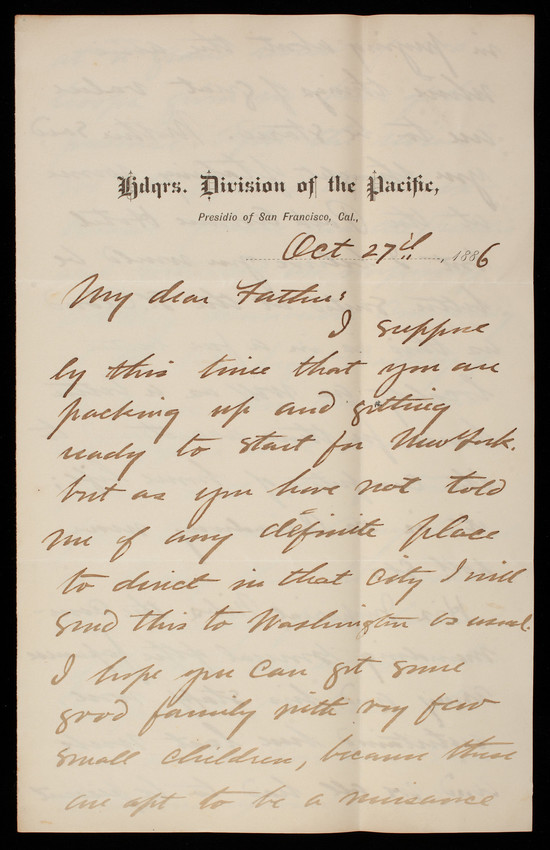 Hdqrs. Division of the Pacific,
Presidio of San Francisco, Cal.,
Oct 27th, 1886
My dear Father:
I suppose
by this time that you are
packing up and getting
ready to start for New York.
but as you have not told
me of any definite place
to direct in that city I will
send this to Washington as usual.
I hope you can get some
good family with very few
small children, because these
are apt to be a nuisance